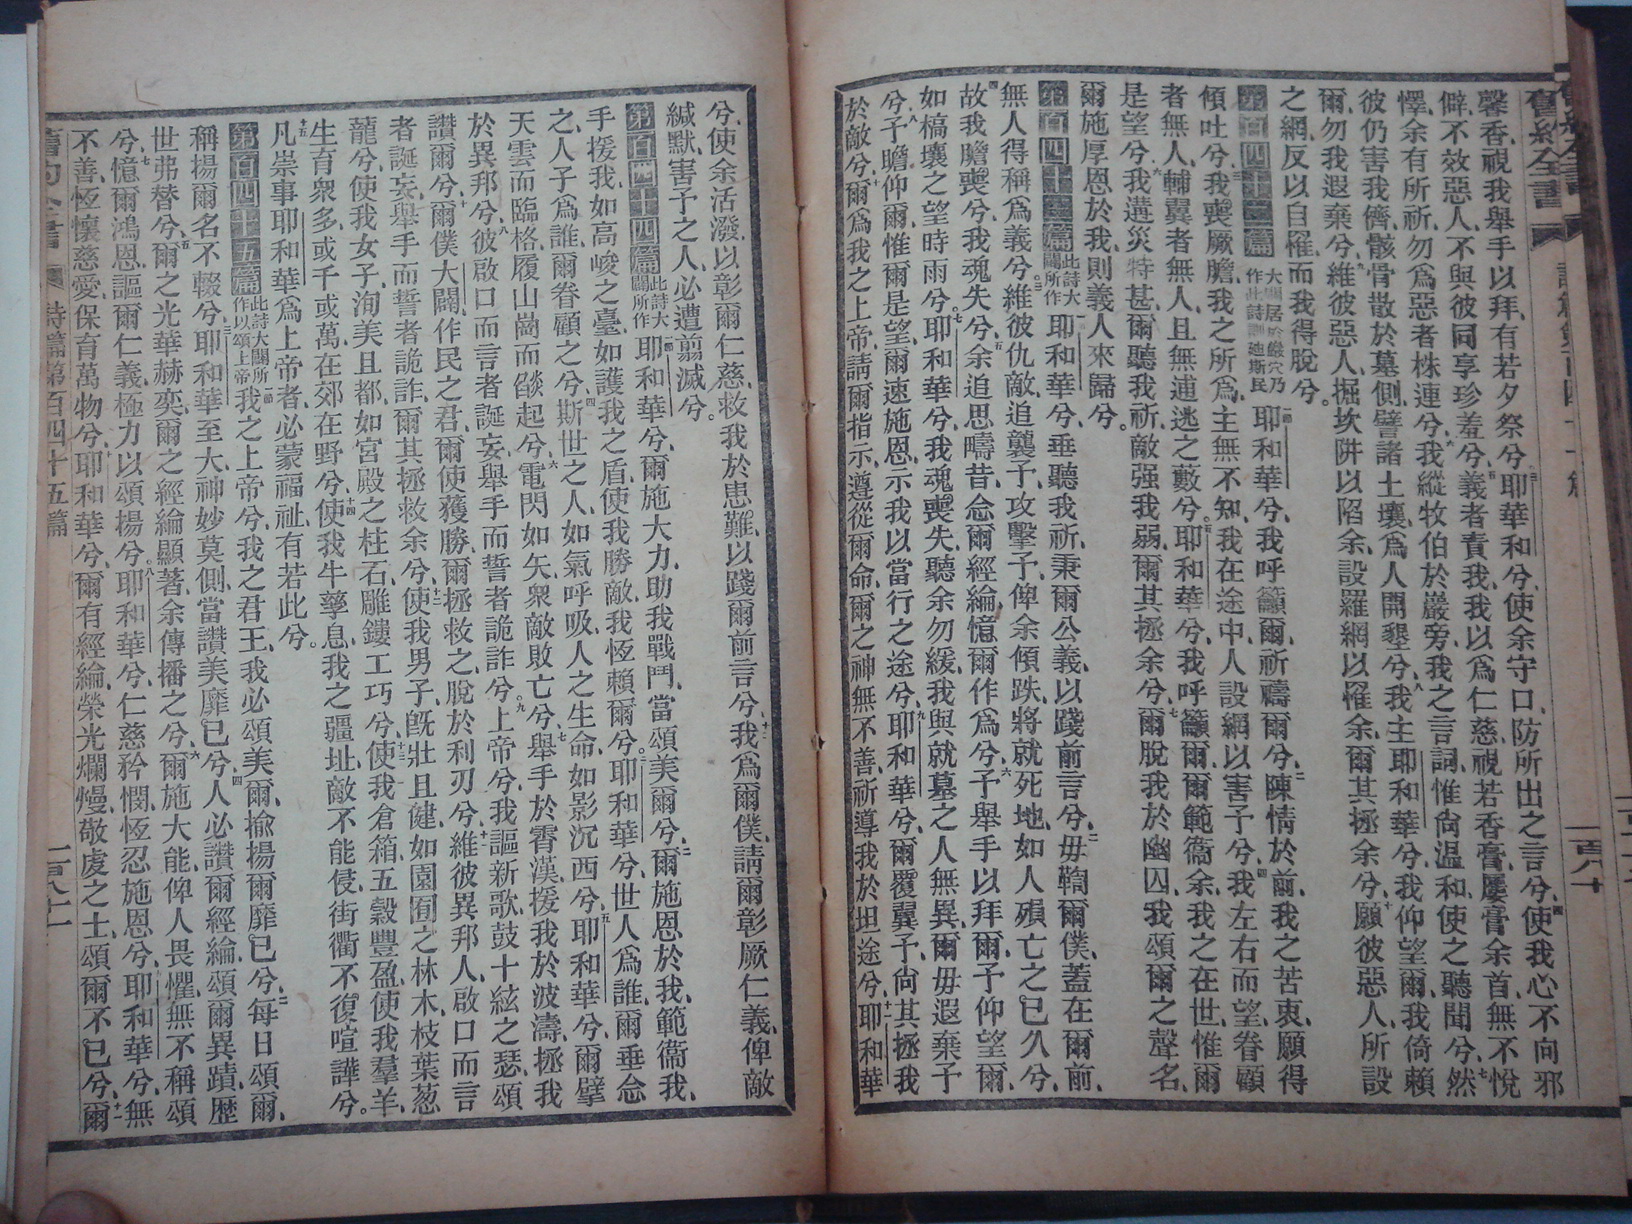 舊約全書
一百八十
馨香視我舉手以拜有若夕祭兮三耶和華兮使余守口防所出之言兮四使我心不向邪
僻不效惡人不與彼同享珍羞兮五義者責我我以爲仁慈視若香膏屢膏余首無不悅
懌余有所祈勿爲惡者株連兮六我縱牧伯於巖旁我之言詞惟尚溫和使之聽聞兮七然
彼仍害我儕骸骨散於墓側譬諸土壤爲人開墾兮八我主耶和華兮我仰望爾我倚賴
爾勿我遐棄兮九維彼惡人掘坎阱以陷余設羅網以罹余爾其拯余兮十願彼惡人所設
之網反以自罹而我得脫兮。
第百四十二篇 大闢居於巖穴乃作此詩訓迪斯民 一節耶和華兮我呼籲爾祈禱爾兮二陳情於前我之苦衷願得
傾吐兮三我喪厥膽我之所爲主無不知我在途中人設網以害予兮四我左右而望眷顧
者無人輔翼者無人且無逋逃之藪兮五耶和華兮我呼籲爾爾範衞余我之在世惟爾
是望兮六我遘災特甚爾聽我祈敵强我弱爾其拯余兮七爾脫我於幽囚我頌爾之聲名
爾施厚恩於我則義人來歸兮。
第百四十三篇 此詩大闢所作 一節耶和華兮垂聽我祈秉爾公義以踐前言兮二毋鞫爾僕蓋在爾前
無人得稱爲義兮三維彼仇敵追襲予攻擊予俾余傾跌將就死地如人殞亡之已久兮
四故我膽喪兮我魂失兮五余追思疇昔念爾經綸憶爾作爲兮六予舉手以拜爾予仰望爾
如槁壤之望時雨兮七耶和華兮我魂喪失聽余勿緩我與就墓之人無異爾毋遐棄予
兮八予瞻仰爾惟爾是望爾速施恩示我以當行之途兮九耶和華兮爾覆翼予尚其拯我
於敵兮十爾爲我之上帝請爾指示遵從爾命爾之神無不善祈導我於坦途兮十一耶和華
兮使余活潑以彰爾仁慈救我於患難以踐爾前言兮十二我爲爾僕請爾彰厥仁義俾敵
緘默害予之人必遭翦滅兮。
第百四十四篇 此詩大闢所作 一節耶和華兮爾施大力助我戰鬥當頌美爾兮二爾施恩於我範衞我
手援我如高峻之臺如護我之盾使我勝敵我恆賴爾兮三耶和華兮世人爲誰爾垂念
之人子爲誰爾眷顧之兮四斯世之人如氣呼吸人之生命如影沉西兮五耶和華兮爾擘
天雲而臨格履山崗而燄起兮六電閃如矢衆敵敗亡兮七舉手於霄漢援我於波濤拯我
於異邦兮八彼啟口而言者誕妄舉手而誓者詭詐兮九上帝兮我謳新歌鼓十絃之瑟頌
讚爾兮十爾僕大闢作民之君爾使獲勝爾拯救之脫於利刃兮十一維彼異邦人啟口而言
者誕妄舉手而誓者詭詐爾其拯救余兮十二使我男子旣壯且健如園囿之林木枝葉葱
蘢兮使我女子洵美且都如宮殿之柱石雕鏤工巧兮十三使我倉箱五穀豐盈使我羣羊
生育衆多或千或萬在郊在野兮十四使我牛孳息我之疆址敵不能侵街衢不復喧譁兮
十五凡崇事耶和華爲上帝者必蒙福祉有若此兮。
第百四十五篇 此詩大闢所作以頌上帝 一節我之上帝兮我之君王我必頌美爾揄揚爾靡已兮二每日頌爾
稱揚爾名不輟兮三耶和華至大神妙莫側當讚美靡已兮四人必讚爾經綸頌爾異蹟歷
世弗替兮五爾之光華赫奕爾之經綸顯著余傳播之兮六爾施大能俾人畏懼無不稱頌
兮七憶爾鴻恩謳爾仁義極力以頌揚兮八耶和華兮仁慈矜憫恆忍施恩兮九耶和華兮無
不善恆懷慈愛保育萬物兮十耶和華兮爾有經綸榮光爛熳敬虔之士頌爾不已兮十一爾
舊約全書 詩篇第百四十五篇
一百八十一